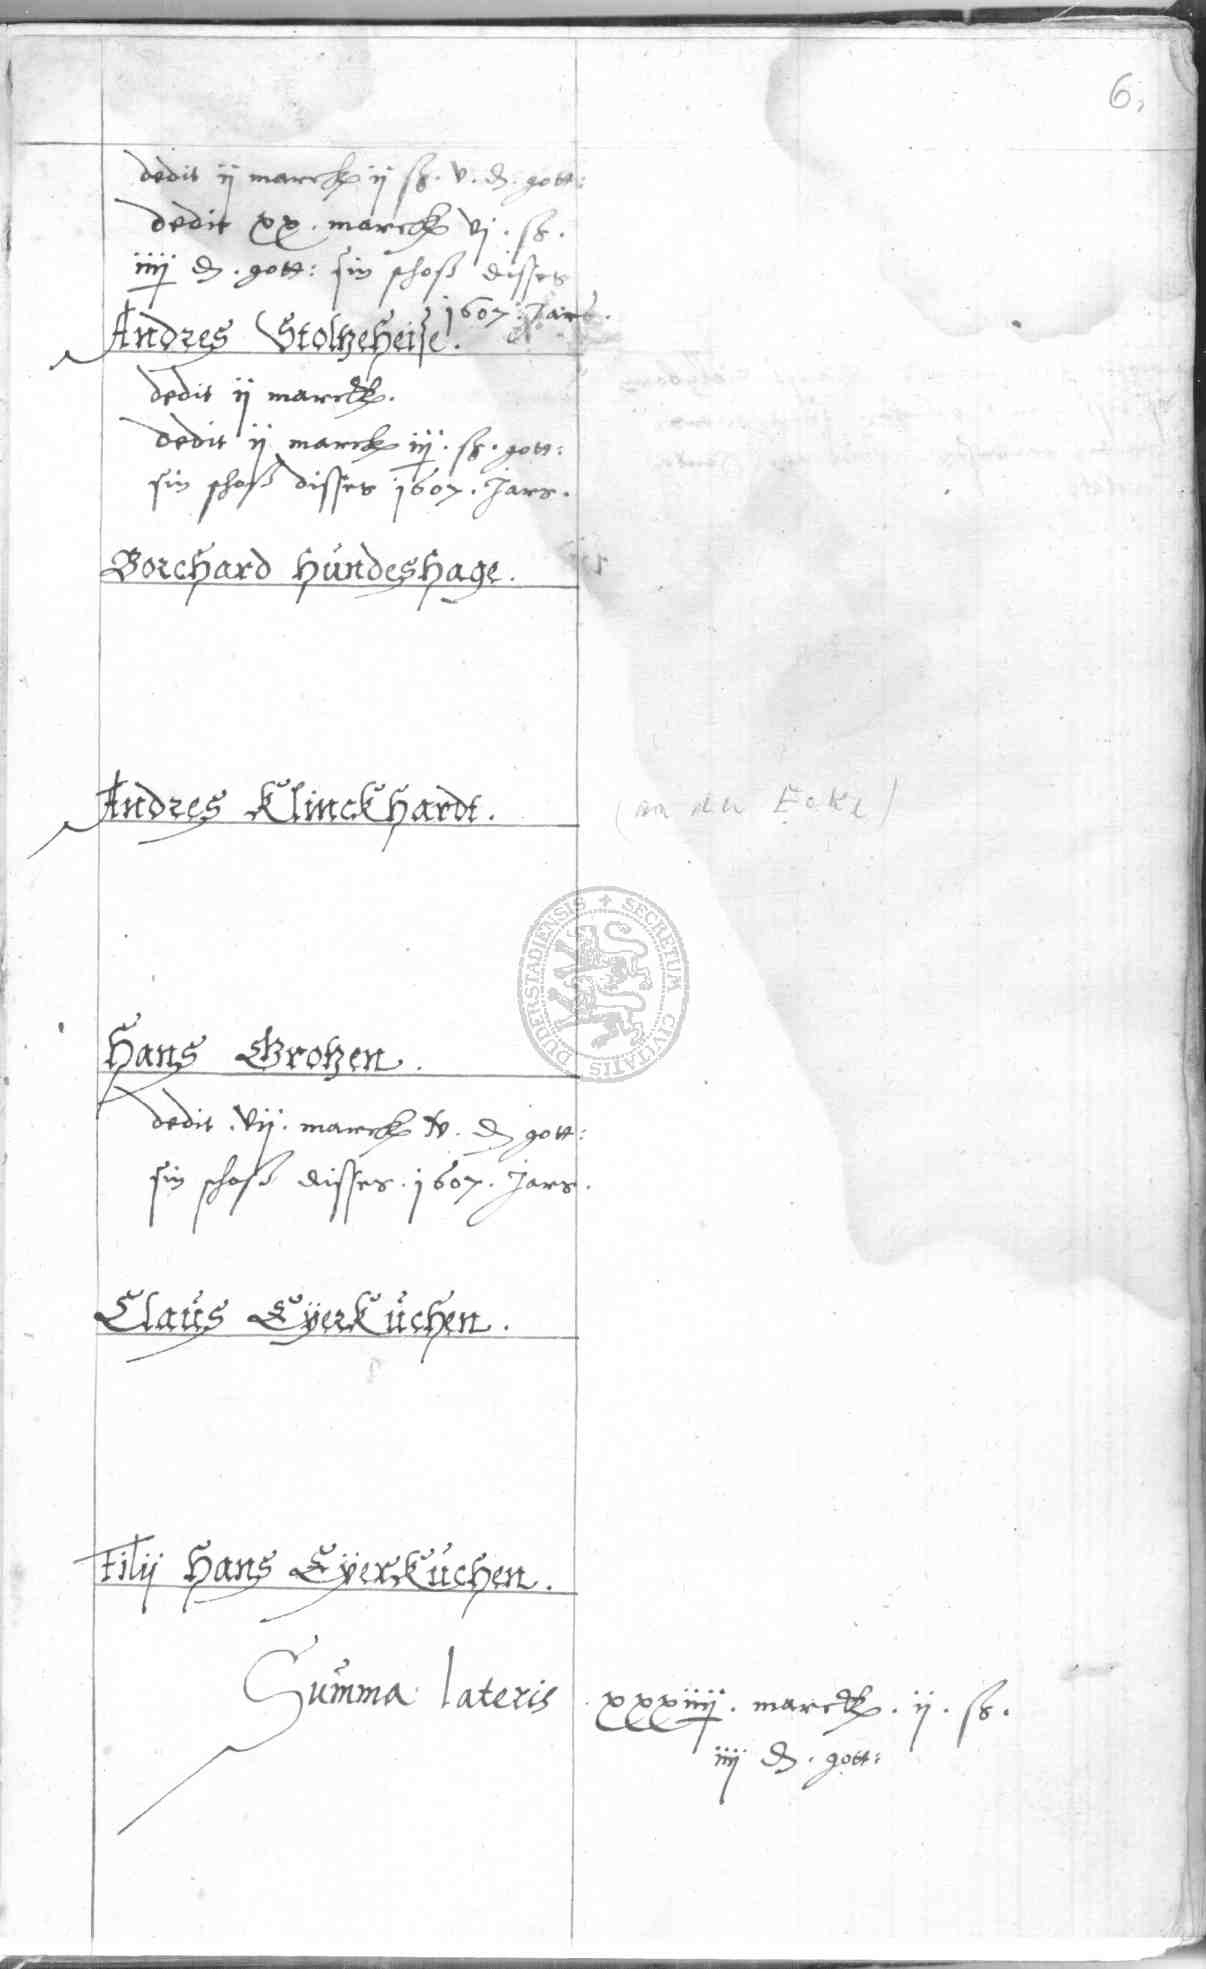 6.
dedit ij marck ij ß. v. ₰. gott:
dedit xx. marck vj. ß.
iiij ₰. gott: sin schoß disses
1607. Jars.
Andres Stoltzeheise.
dedit ij marck.
dedit ij marck iij. ß. gott:
sin schoß disses 1607. Jars.
Borchard Hundeshage.
Andres Klinckhardt.
(an der Ecke)
Hans Grotzen.
dedit. vij. marck iv. ₰ gott:
sin schoß disses. 1607. Jars.
Claus Eÿerkuchen.
filij Hans Eÿerkuchen.
Summa lateris xxxiiij. marck. ij. ß.
iiij ₰. gott:
SECRETUM CIVITATIS DUDERSTADIENSIS